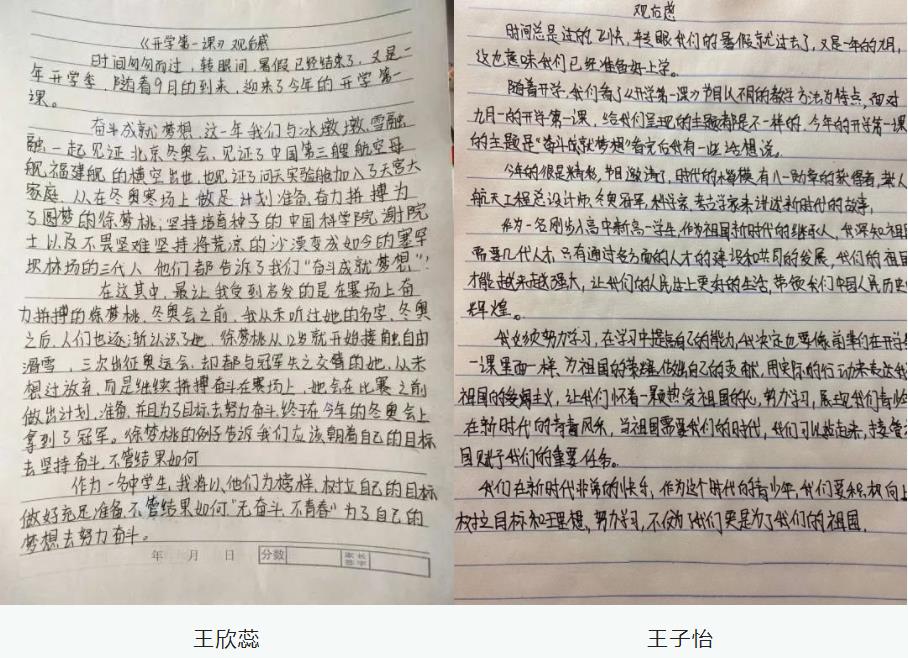 《开学第一课》观后感
时间匆匆而过，转眼间，暑假已经结束了，又是一
年开学季，随着9月的到来，迎来了今年的开学第一
课。
奋斗成就梦想，这一年我们与冰墩墩、雪融
融一起见证北京冬奥会，见证了中国第三艘航空母
舰福建舰的横空出世，也见证了问天实验舱加入了天宫大
家庭，从在冬奥赛场上做足计划准备，奋力拼搏为
了圆梦的徐梦桃；坚持培育种子的中国科学院谢院
士以及不畏坚难坚持将荒凉的沙漠变成如今的塞罕
坝林场的三代人，他们都告诉了我们“奋斗成就梦想”！
在这其中，最让我受到启发的是在赛场上奋
力拼搏的徐梦桃，冬奥会之前，我从未听过她的名字，冬奥
之后，人们也逐渐认识了她，徐梦桃从12岁就开始接触自由
滑雪，三次出征奥运会，却都与冠军失之交臂的她，从未
想过放弃，而是继续拼搏奋斗在赛场上，她会在比赛之前
做出计划，准备，并且为了目标去努力奋斗，终于在今年的冬奥会上
拿到了冠军。徐梦桃的例子告诉我们应该朝着自己的目标
去坚持奋斗，不管结果如何
作为一名中学生，我将以他们为榜样，树立自己的目标
做好充足准备，不管结果如何“无奋斗，不青春”为了自己的
梦想去努力奋斗。
年 月 日 分数 家长签字
观后感
时间总是过的飞快，转眼我们的暑假就过去了，又是一年的九月，
这也意味我们已经准备好上学。
随着开学，我们看了《开学第一课》节目以不同的教学方法为特点，面对
九月一的开学第一课，给我们呈现的主题都是不一样的，今年的开学第一课
的主题是“奋斗成就梦想”看完后我有一些话想说。
今年的很是精彩，节目邀请了，时代的楷模，有八一勋章的获得者，载人
航天工程总设计师，冬奥冠军，科学家，考古学家来讲述新时代的故事，
我为一名刚步入高中新高一学生，作为祖国新时代的继承人，我深知祖国
需要几代人才，只有通过多方面的人才的建设和共同的发展，我们的祖国
才能越来越强大，让我们的人民过上更好的生活，带领我们中国人民历史
辉煌。
我必须努力学习，在学习中提高自己的能力，我决定也要像前辈们在开学第
一课里面一样，为祖国的英雄，做出自己的贡献，用实际的行动来表达我
祖国的爱国主义，让我们怀着一颗热爱祖国的心，努力学习，展现我们青少年
在新时代的青春风采，当祖国需要我们的时代，我们可以站起来，接受祖
国赋予我们的重要任务。
我们在新时代非常的快乐，作为这个时代的青少年，我们要积极向上
树立目标和理想，努力学习，不仅为了我们更是为了我们的祖国。
王欣蕊
王子怡